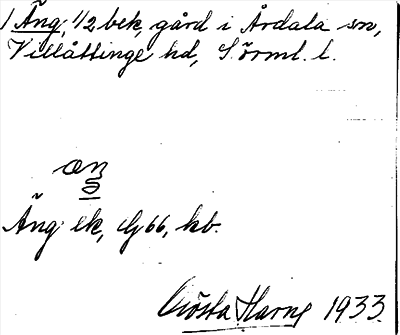 1 Äng, 1/2 bek, gård i Årdala sn,
Villåttinge hd, Sörml. l.
æŋ
Äng: ek, Gj 66, kb.
Gösta Harng 1933